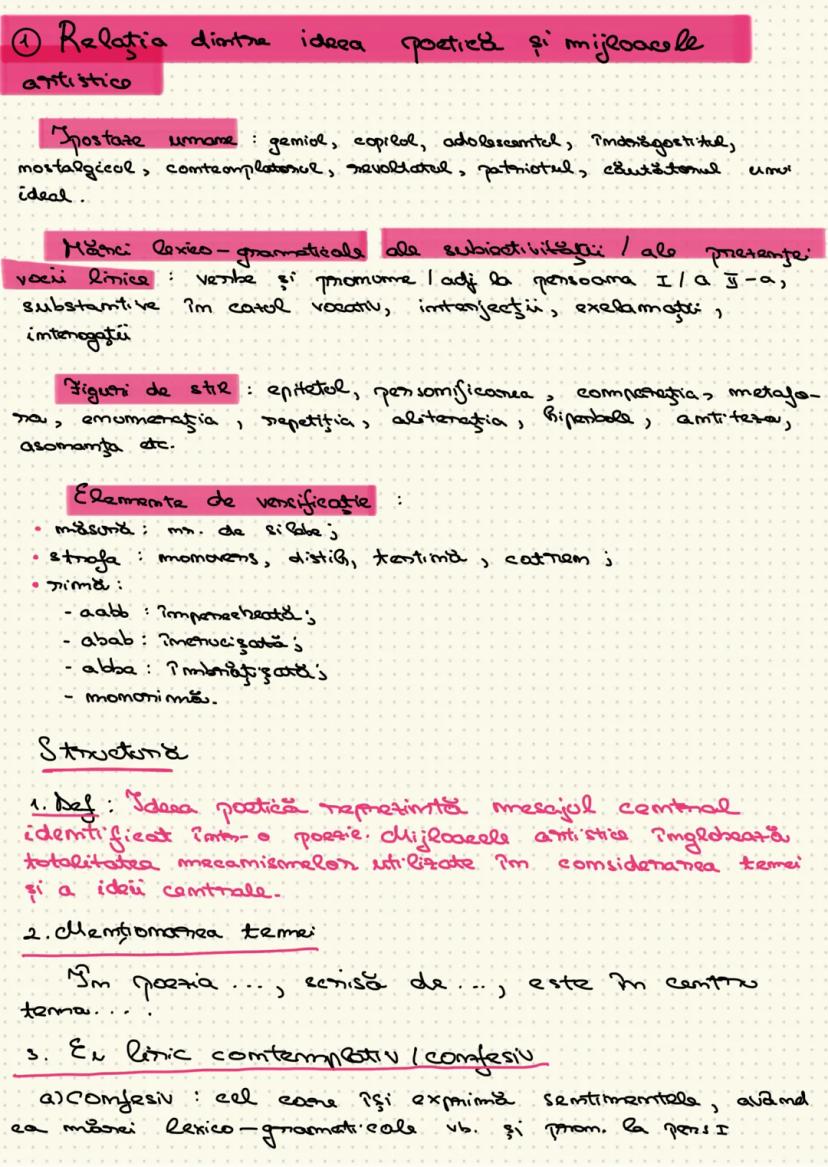 ① Relația dintre ideea poetică și mijloacele
artistice
Ipostaze umane : geniul, copilul, adolescentul, îndrăgostitul,
nostalgicul, contemplatorul, revoltatul, patriotul, căutătorul unui
ideal.
Mărci lexico-gramaticale ale subiectivității / ale prezenței
vocii lirice : verbe și pronume / adj la persoana I / a II-a,
substantive în cazul vocativ, interjecții, exclamații,
interogații
Figuri de stil : epitetul, personificarea, comparația, metafo-
ra, enumerația, repetiția, aliterația, hiperbola, antiteza,
asonanța etc.
Elemente de versificație :
• măsură : nr. de silabe;
• strofa : monovers, distih, terțină, catren ;
• rimă :
- aabb : împerecheată;
- abab : încrucișată;
- abba : îmbrățișată;
- monorimă.
Structură
1. Def : Ideea poetică reprezintă mesajul central
identificat într-o poezie. Mijloacele artistice înglobează
totalitatea mecanismelor utilizate în considerarea temei
și a ideii centrale.
2. Menționarea temei
În poezia ..., scrisă de ..., este în centru
tema....
3. Eu liric contemplativ / confesiv
a) confesiv : cel care își exprimă sentimentele, având
ca mărci lexico-gramaticale vb. și pron. la pers I